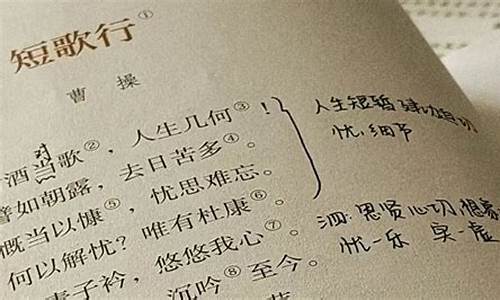 短歌行①
曹操
酒当歌②，人生几何③！
对
譬如朝露，去日苦多④。
慨当以慷⑤，忧思难忘。
何以解忧？唯有杜康⑥。
青子衿，悠悠我心⑦。
沉吟⑧至今。
人生短暂 建功
忧 细节
泗·思贤心切
忧一乐 实一虚